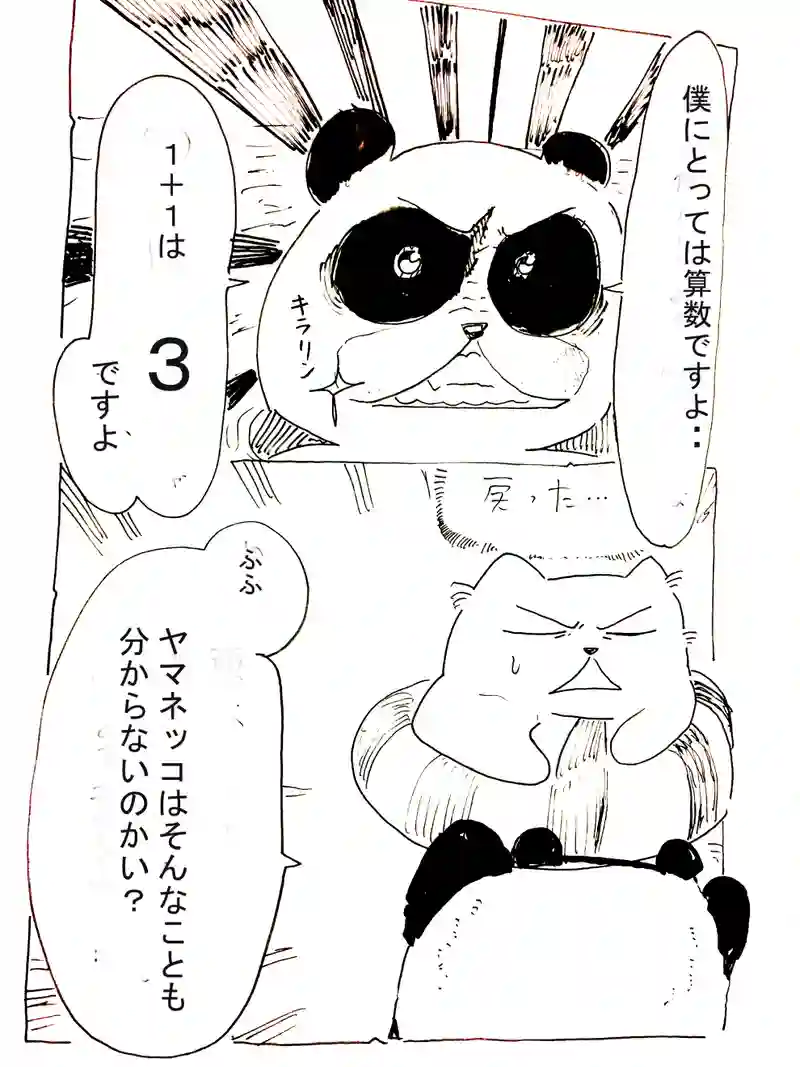 僕にとっては算数ですよ‥
キラリン
1+1は
3
ですよ
戻った…
ふふ
ヤマネッコはそんなことも
分からないのかい?